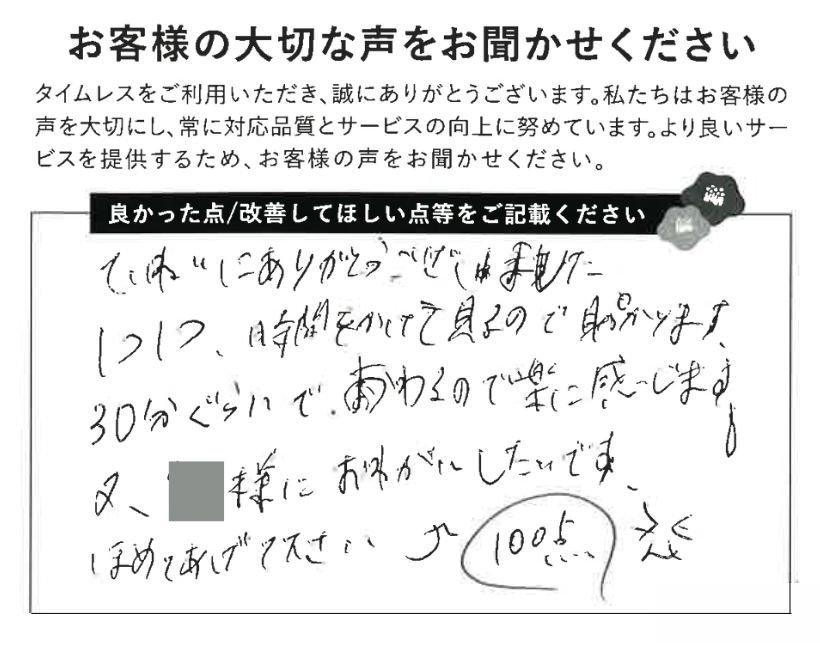 お客様の大切な声をお聞かせください
タイムレスをご利用いただき、誠にありがとうございます。私たちはお客様の
声を大切にし、常に対応品質とサービスの向上に努めています。より良いサー
ビスを提供するため、お客様の声をお聞かせください。
良かった点/改善してほしい点等をご記載ください
ていねいにありがとうございました
1つ1つ、時間をかけて見るので助かります、
30分ぐらいで、終わるので楽に感じます!
又、様におねがいしたいです、
ほめてあげて下さい 100点